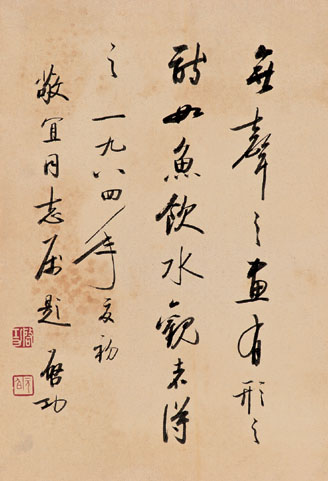 無聲之畫有形之
詩如魚飲水觀者得
之一九八四年夏初
敬宜同志屬題 啓功